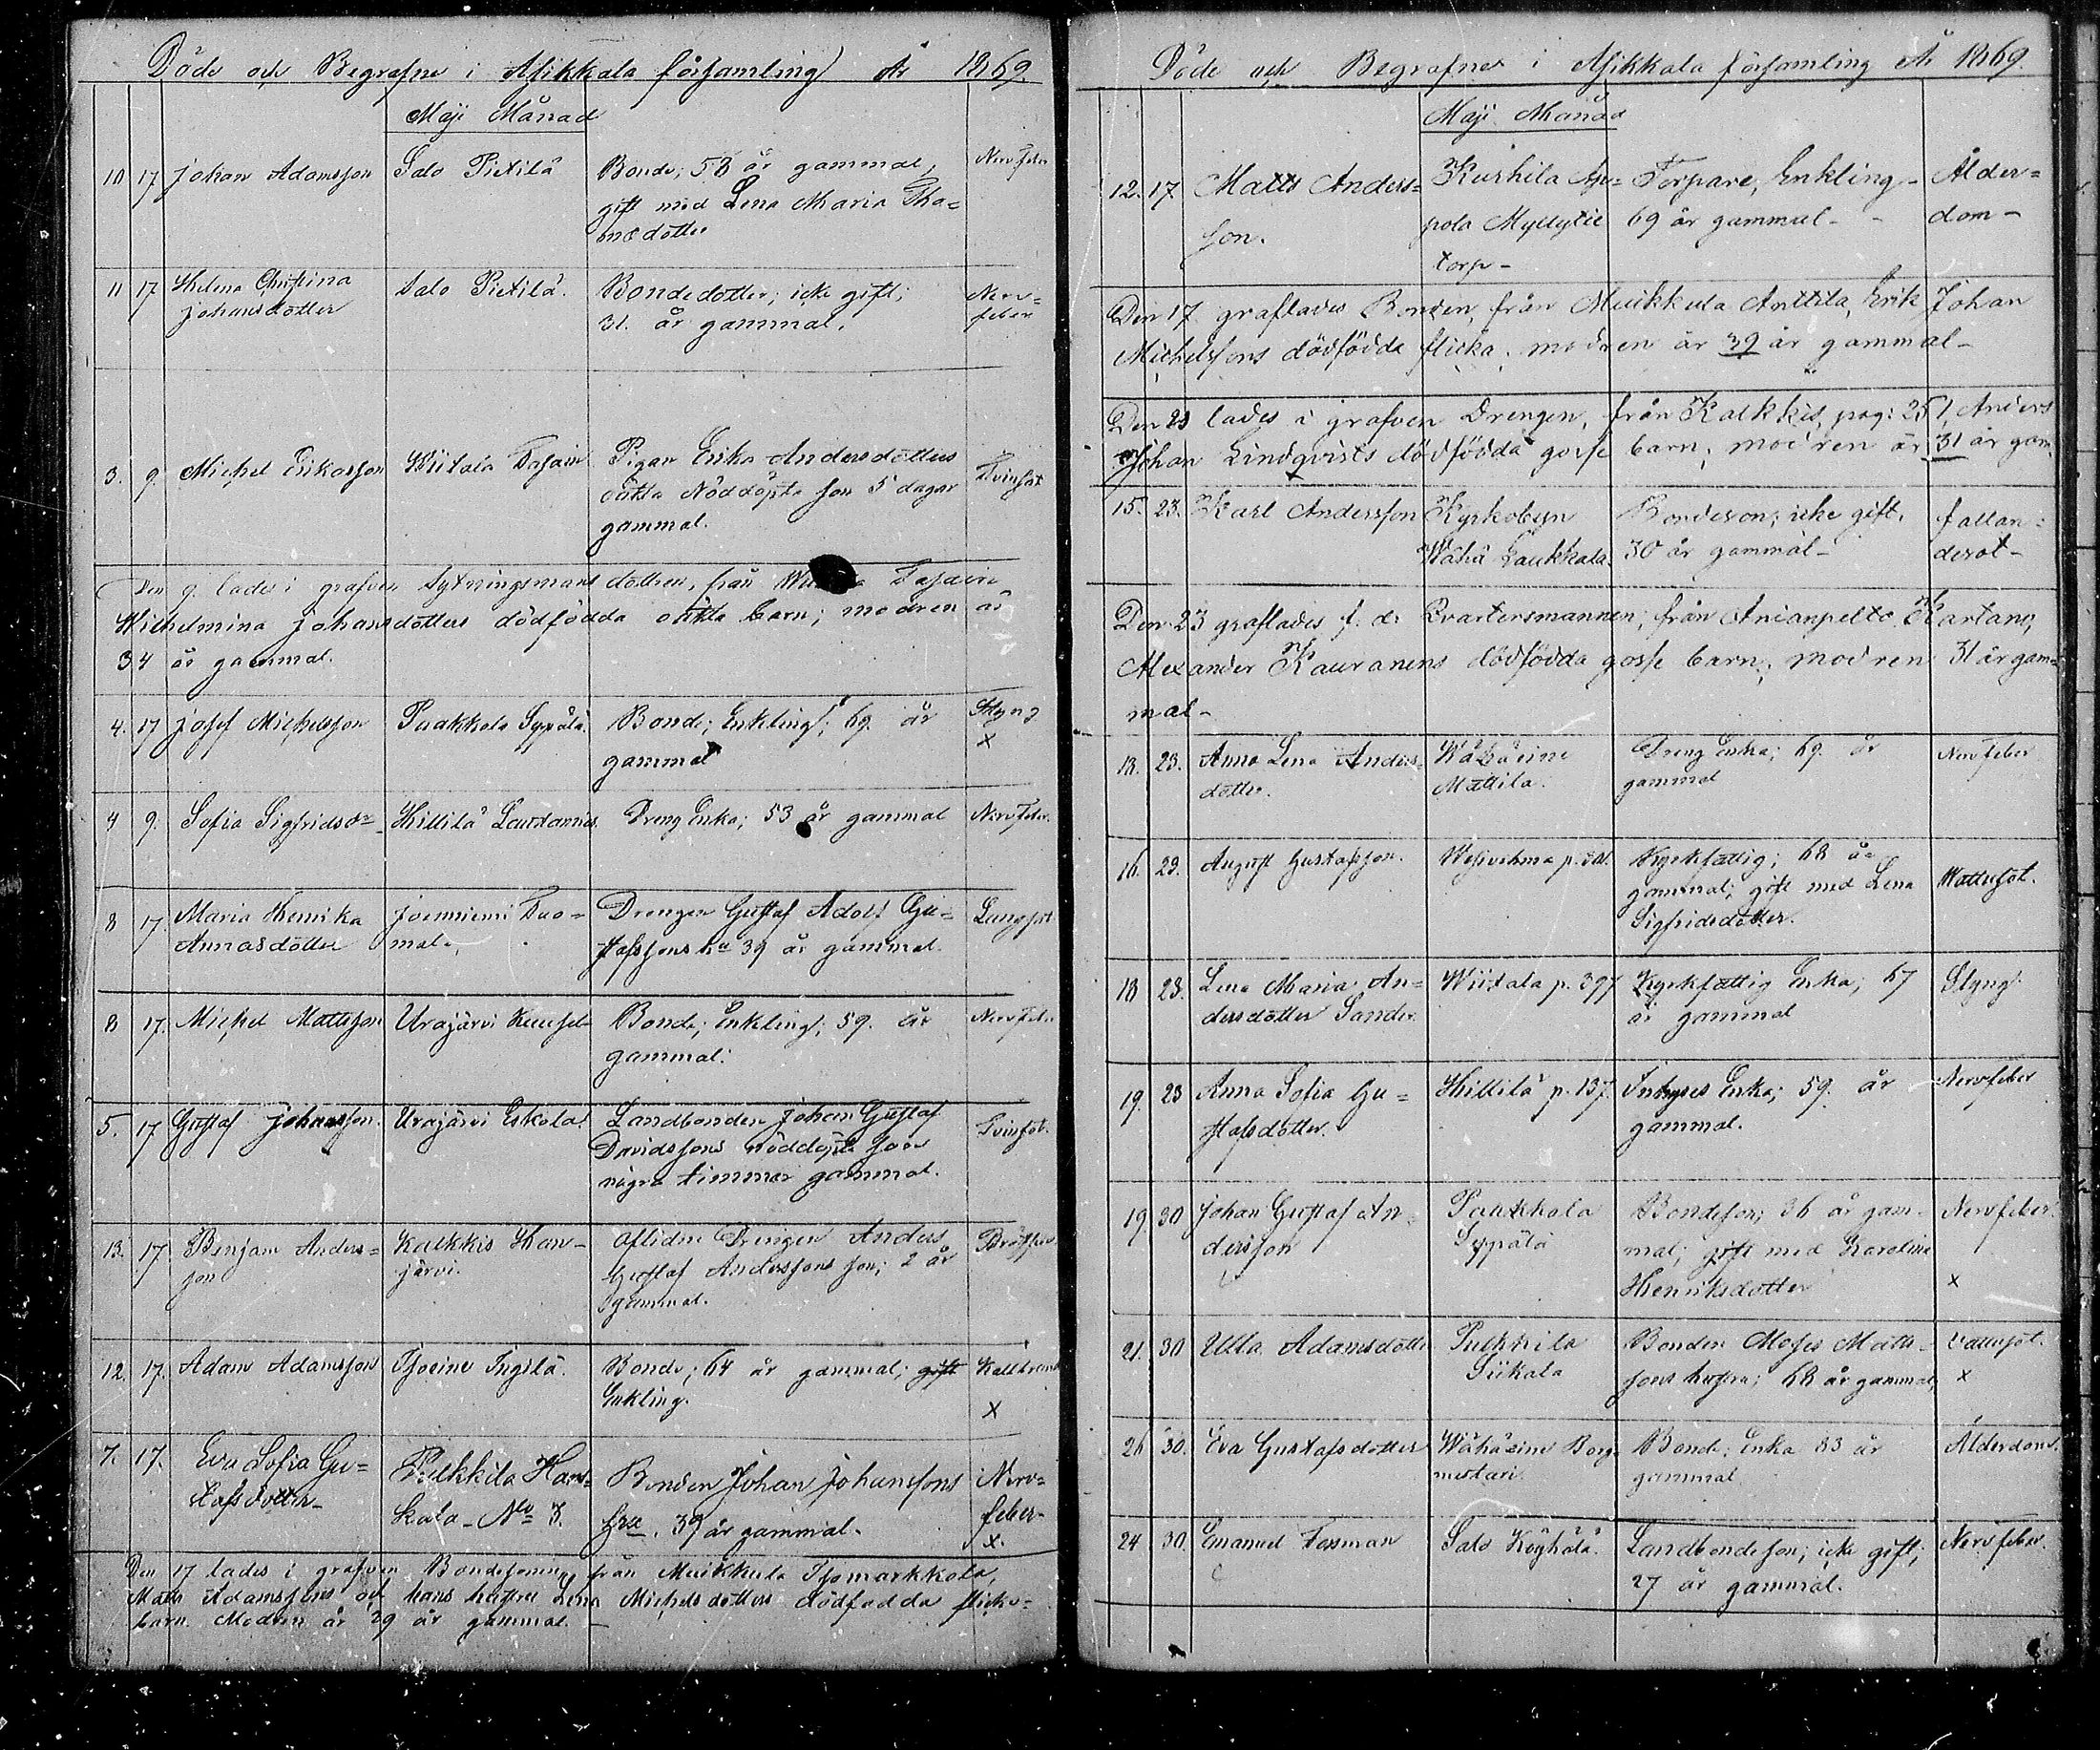 Döde och Begrafne i Asikkala församling År 1869.
Maji Månad
10 17 Johan Adamsson Salo Pietilä Bonde; 58 år gammal, Nervfeber
gift med Lena Maria Tho=
mædotter
11 17 Helena Christina Salo Pietilä. Bondedotter; icke gift; Nerv=
Johansdotter 31. år gammal. feber
3. 9. Michel Erikasson Wiitala Pigan Erika Andersdotters
oäkta Nöddöpta son 5 dagar
gammal.
Den 9. lades i grafven Sytningsmans dottren, från
Wilhelmina Johansdotters dödfödda oäkta barn; modren är
34 år gammal.
4. 17 Josef Michelsson Paakkola Sypälä. Bonde; Enkling; 69. år Styng
gammal x
4 9. Sofia Sigfridsdr Hillilä Dreng Enka; 53 år gammal Nervfeber.
8 17. Maria Henrika Joenniemi Tuo= Drengen Gustaf Adolf Gu= Lungsot
Annasdotter mala. stafssons hu 39 år gammal.
8 17. Michel Mattsson Urajärvi Bonde; Enkling; 59. år Nervfeber
gammal.
5. 17 Gustaf Johansson. Urajärvi Eskola. Landbonden Johan Gustaf
Davidssons nöddöpta son
några timmar gammal.
13. 17. Benjam Anders= Kalkkis Han= aflidne Drengen Anders
son järvi. Gustaf Anderssons son; 2 år
gammal.
12. 17. Adam Adamsson Ingilä. Bonde; 64 år gammal; gift Kallbrand
Enkling. x
7. 17. Eva Sofia Gu= Pulkkila Bonden Johan Johanssons Nerv=
stafsdotter kala No 3. hu. 39 år gammal. feber
x.
Den 17 lades i grafven Bondesonens från Muikkula
Matts Adamssons och hans hustru Lena Michelsdotters dödfödda flicko=
barn. Modren är 29 år gammal.
Döde och Begrafne i Asikkala församling År 1869.
Maji Månad
12. 17. Matts Anders= Kurhila Torpare, Enkling Ålder=
son. pola Myllytie 69 år gammal dom
torp
Den 17 graflades Bonden, från Muikkula Anttila, Erik Johan
Michelssons dödfödda flicka; modren är 39 år gammal
Den 23 lades i grafven Drengen, från Kalkkis, pag: 251, Anders
Johan Lindqvists dödfödda gosse barn; modren är 31 år gam
15. 23. Karl Andersson Kyrkobyn Bondeson; icke gift. fallan=
Wähä Laukkala. 30 år gammal desot
Den 23 graflades f. d. Qvartersmannen; från Anianpelto Kartano,
Alexander Kauranens dödfödda gosse barn; modren 31 år gam=
mal
18. 23. Anna Lena Anders Wähäeine Dreng Enka; 69. år Nervfeber
dotter. Mattila. gammal
16. 23. August Gustafsson. Wesivehmaa Kyrkfattig; 68 år
gammal; gift med Lena Wattusot.
Sigfridsdotter.
18 23. Lena Maria An= Wiitala p. 397 Kyrkfattig Enka; 67 Styng
dersdotter Sander. år gammal
19. 23 Anna Sofia Gu= Hillilä p. 137. Inhyses Enka; 59. år Nervfeber
stafsdotter. gammal.
19 30 Johan Gustaf An= Paakkola Bondeson; 36 år gam= Nervfeber.
dersson Sypälä mal; gift med Karolina
Henriksdotter x
21. 30 Ulla Adamsdotter Pulkkila Bonden Moses Matts= Vattusot.
Siikala sons hustru; 68 år gammal, x
26 30. Eva Gustafsdotter Wähäeine Borg= Bonde Enka 83 år Ålderdom.
mestari gammal
24 30. Emanuel Forsman Salo Köyhälä. Landbondeson; icke gift; Nervfeber.
27 år gammal.